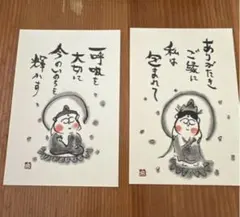 一呼吸を
大切に
今のいのちを
輝かす
ありがたき
ご縁に
私は
包まれて